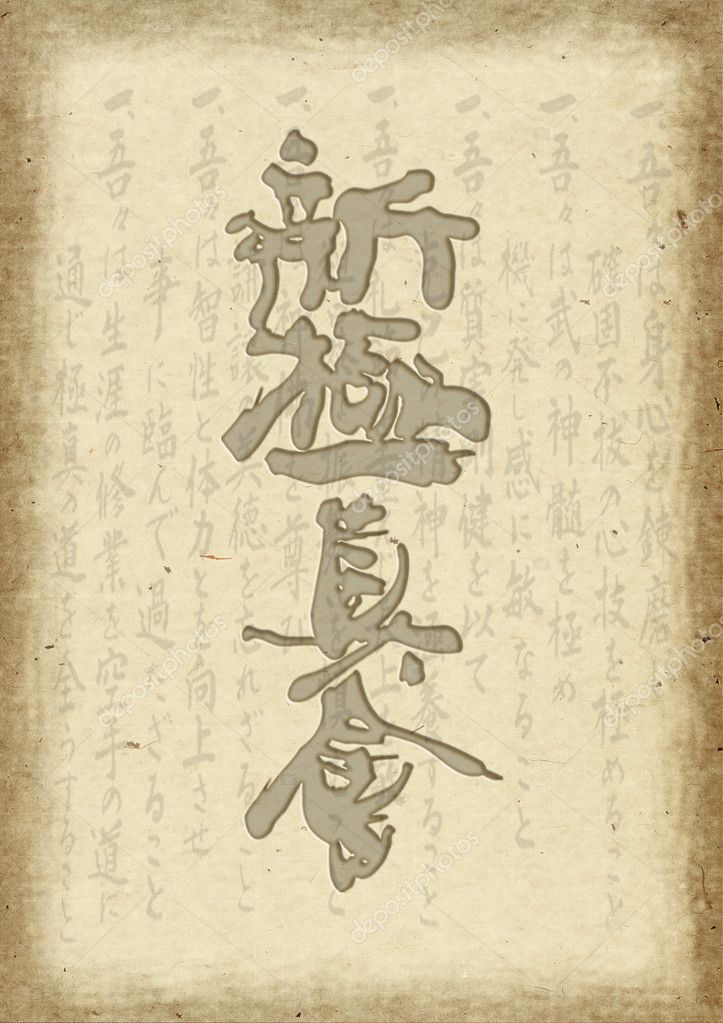 新極真會
一、吾々は身心を錬磨し
確固不抜の心技を極めること
一、吾々は武の神髄を極め
機に発し感に敏なること
一、吾々は質実剛健を以て
精神を養すること
一、吾々は礼
一、神を尊び
謙譲の美徳をわすれざること
一、吾々は智性と体力とを向上させ
事に臨んで過たざること
一、吾々は生涯の修業を空手の道に
通じ極真の道を全うすること
depositphotos